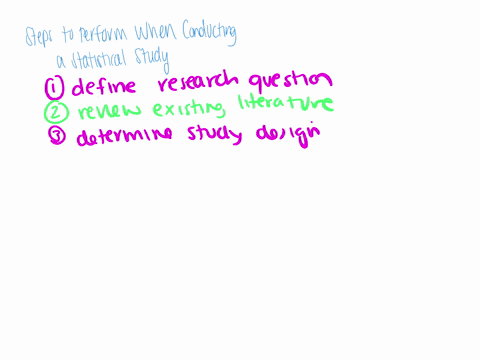 Steps to Perform When Conducting
a Statistical Study
① define research question
② review existing literature
③ determine study design